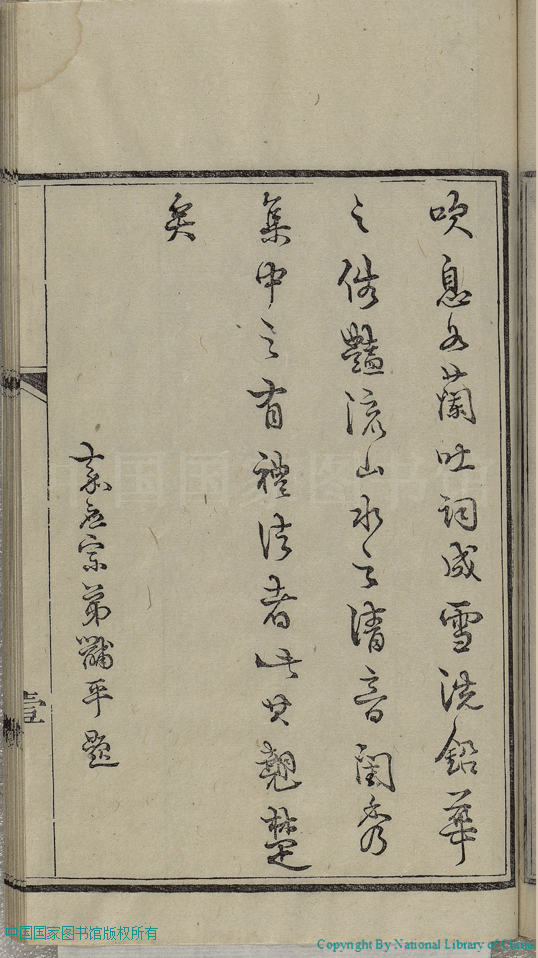 吹息如蘭吐詞成雪洗鉛華
之俗豔流山水之清音閨秀
集中之有禮法者此其翹楚
矣
宗弟黼平題
壹
中国国家图书馆
中国国家图书馆版权所有
Copyright By National Library of China